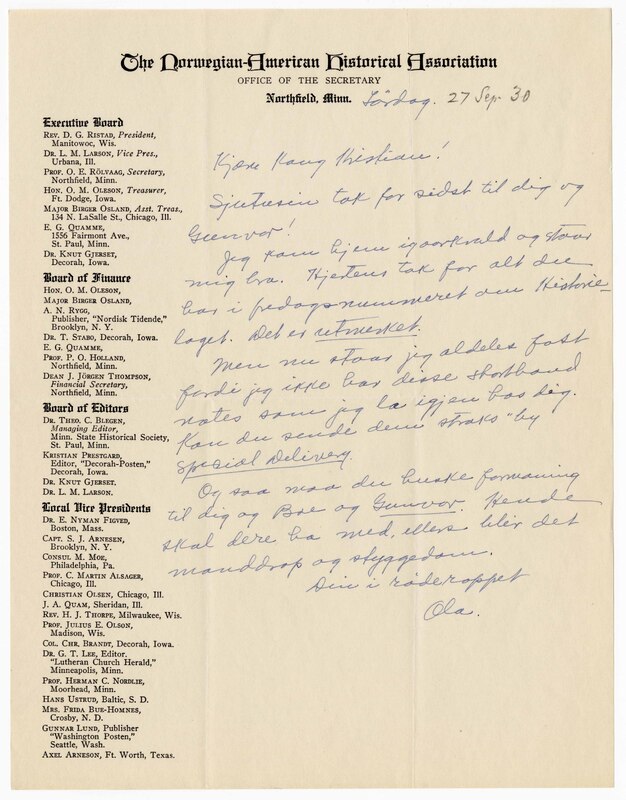 The Norwegian-American Historical Association
OFFICE OF THE SECRETARY
Northfield, Minn. Lördag. 27 Sep. 30
Executive Board
REV. D. G. RISTAD, President,
Manitowoc, Wis.
DR. L. M. LARSON, Vice Pres.,
Urbana, Ill.
PROF. O. E. RÖLVAAG, Secretary,
Northfield, Minn.
HON. O. M. OLESON, Treasurer,
Ft. Dodge, Iowa.
MAJOR BIRGER OSLAND, Asst. Treas.,
134 N. LaSalle St., Chicago, Ill.
E. G. QUAMME,
1556 Fairmont Ave.,
St. Paul, Minn.
DR. KNUT GJERSET,
Decorah, Iowa.
Board of Finance
HON. O. M. OLESON,
MAJOR BIRGER OSLAND,
A. N. RYGG,
Publisher, "Nordisk Tidende,"
Brooklyn, N. Y.
DR. T. STABO, Decorah, Iowa.
E. G. QUAMME,
PROF. P. O. HOLLAND,
Northfield, Minn.
DEAN J. JÖRGEN THOMPSON,
Financial Secretary,
Northfield, Minn.
Board of Editors
DR. THEO. C. BLEGEN,
Managing Editor,
Minn. State Historical Society,
St. Paul, Minn.
KRISTIAN PRESTGARD,
Editor, "Decorah-Posten,"
Decorah, Iowa.
DR. KNUT GJERSET.
DR. L. M. LARSON,
Local Vice Presidents
DR. E. NYMAN FIGVED,
Boston, Mass.
CAPT. S. J. ARNESEN,
Brooklyn, N. Y.
CONSUL M. MOE,
Philadelphia, Pa.
PROF. C. MARTIN ALSAGER,
Chicago, Ill.
CHRISTIAN OLSEN, Chicago, Ill.
J. A. QUAM, Sheridan, Ill.
REV. H. J. THORPE, Milwaukee, Wis.
PROF. JULIUS E. OLSON,
Madison, Wis.
COL. CHR. BRANDT, Decorah, Iowa.
DR. G. T. LEE, Editor.
"Lutheran Church Herald,"
Minneapolis, Minn.
PROF. HERMAN C. NORDLIE,
Moorhead, Minn.
HANS USTRUD, Baltic, S. D.
MRS. FRIDA BUE-HOMNES,
Crosby, N. D.
GUNNAR LUND, Publisher
"Washington Posten,"
Seattle, Wash.
AXEL ARNESON, Ft. Worth, Texas.
Kjære Kong Kristian!
Sjutusin tak for sidst til dig og
Gunvor!
Jeg kom hjem igaarkvæld og staar
mig bra. Hjertens tak for alt du
har i fredagsnummeret om Historie-
laget. Det er utmerket.
Men nu staar jeg aldeles fast
fordi jeg ikke har disse shorthand
notes som jeg la igjen hos dig.
Kan du sende dem straks by
Special Delivery.
Og saa maa du huske formaning
til dig og Boe og Gunvor. Hende
skal dere ha med, ellers blir det
manddrap og styggedom.
Din i
Ola.